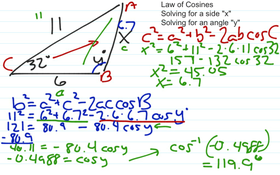 Law of Cosines
Solving for a side "x"
Solving for an angle "y"
11
11
A
6.7
x
c
C
32°
y°
6
a
B
c² = a² + b² - 2ab cos C
x² = 6² + 11² - 2·6·11 cos 32
157 - 132 cos 32
x² = 45.05
x = 6.7
b² = a² + c² - 2ac cos B
11² = 6² + 6.7² - 2·6·6.7 cos y
121 = 80.9 - 80.4 cos y
-80.9
40.11 = -80.4 cos y
-0.4988 = cos y
cos⁻¹(-0.4988)
= 119.9°